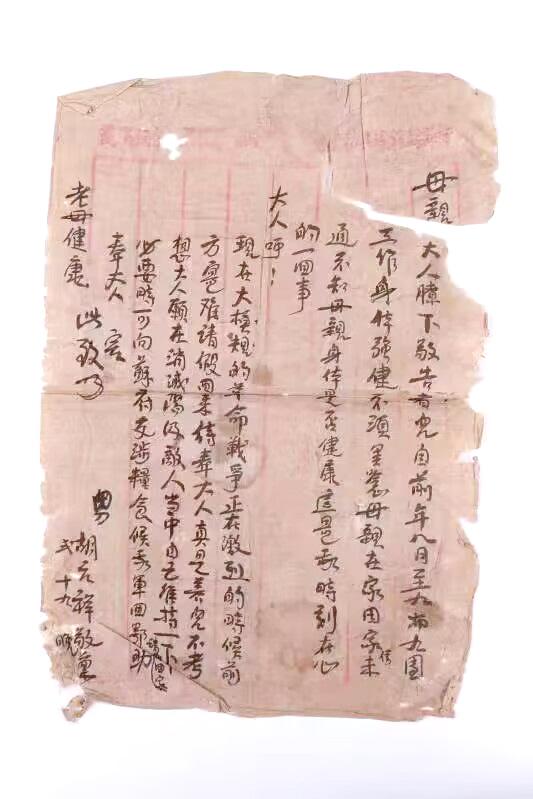 母親
大人膝下敬告者兒自前年八月至九市九團
工作身体強健不須罣念母親在家因家未
信
通不知母親身体是否健康這是我時刻在心
的一回事
大人呼！
現在大模規的革命戰爭正在激烈的時候前
方寔难請假回來侍奉大人真是養兒不孝
想大人願在消滅階級敵人当中自己維持一下
必要時可向蘇府交涉糧食候我軍回鄂助
回家
奉大人
老母健康 此致
男 胡 祥敬稟
弍 十九 晚